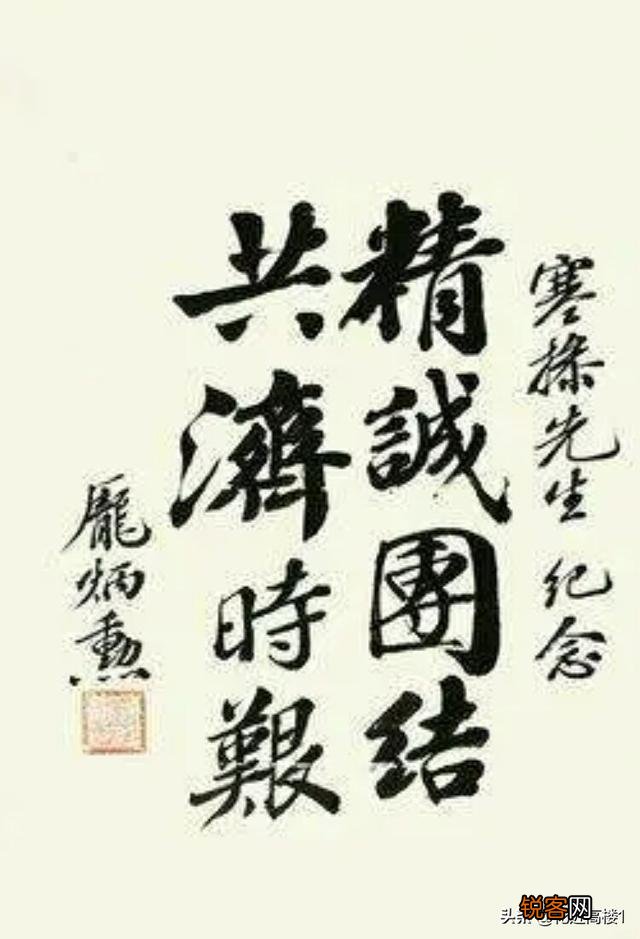 寒操先生 纪念
精誠團结
共濟時艱
龐炳勲
锐客网
头条 @
高楼1